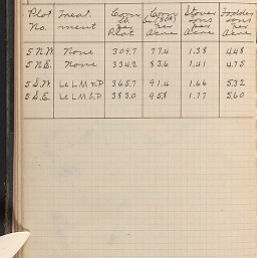 Plot Treat- Corn Corn Stover Fodder
No. ment lb (80#) tons tons
Plot per per per
Acre Acre Acre
5 N.W. None 309.7 77.4 1.38 4.48
5 N.E. None 334.2 83.6 1.41 4.75
5 S.W. Le L M rP 365.7 91.4 1.66 5.32
5 S.E. Le L M S.P 383.0 95.8 1.77 5.60